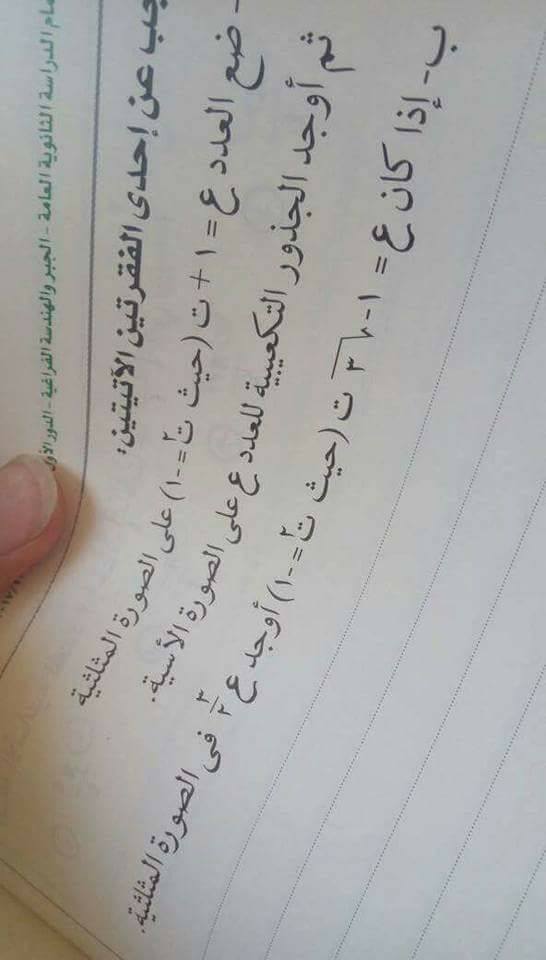 الدراسة الثانوية العامة - الجبر والهندسة الفراغية - الدور الأول
عن إحدى الفقرتين الآتيتين:
- ضع العدد ع = ١ + ت (حيث ت٢ = -١) على الصورة المثلثية
ثم أوجد الجذور التكعيبية للعدد ع على الصورة الأسية.
ب- إذا كان ع = ١ - √٣ ت (حيث ت٢ = -١) أوجد ع ٣/٢ فى الصورة المثلثية.